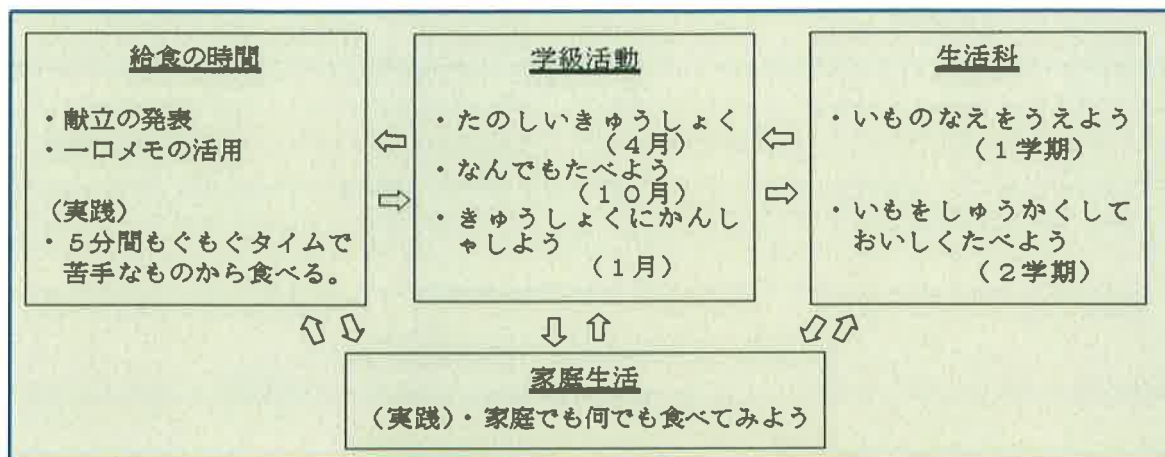 給食の時間
・献立の発表
・一口メモの活用
（実践）
・５分間もぐもぐタイムで
苦手なものから食べる。
学級活動
・たのしいきゅうしょく
（４月）
・なんでもたべよう
（１０月）
・きゅうしょくにかんし
ゃしよう
（１月）
生活科
・いものなえをうえよう
（１学期）
・いもをしゅうかくして
おいしくたべよう
（２学期）
家庭生活
（実践）・家庭でも何でも食べてみよう